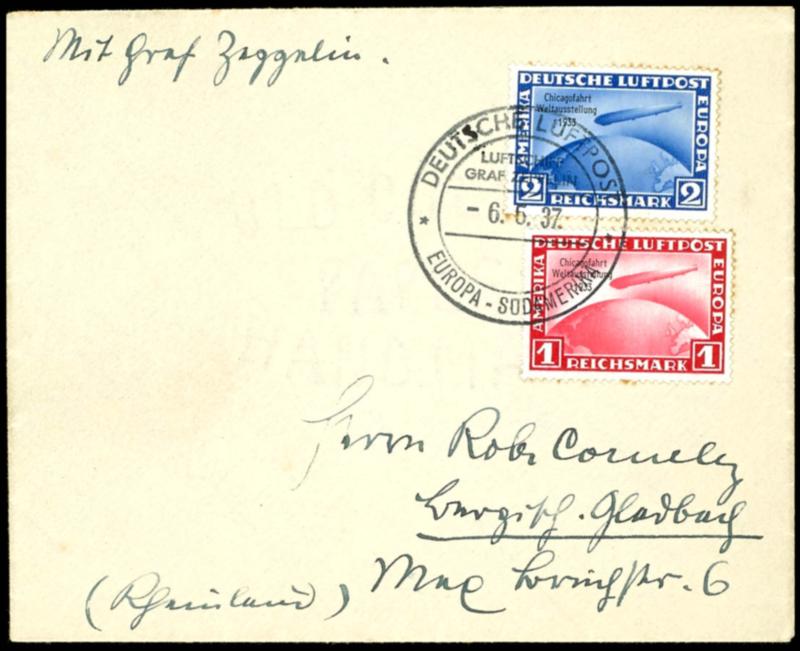 Mit Graf Zeppelin.
DEUTSCHE LUFTPOST
AMERIKA
Chicagofahrt
Weltausstellung
1933
EUROPA
2 2
REICHSMARK
DEUTSCHE LUFTPOST
LUFTSCHIFF
GRAF ZEPPELIN
- 6. 5. 37.
* EUROPA - SÜDAMERIKA *
DEUTSCHE LUFTPOST
AMERIKA
Chicagofahrt
Weltausstellung
1933
EUROPA
1 1
REICHSMARK
Herrn Rob. Cornely
Bergisch. Gladbach
(Rheinland) Max Bruchstr. 6